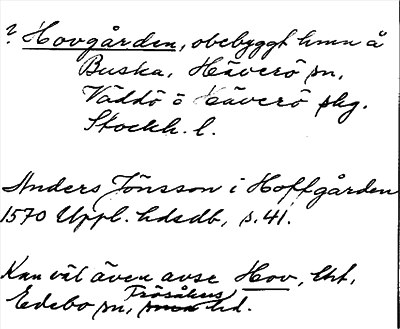 ? Hovgården, obebyggt hmn å
Buska, Häverö sn,
Väddö o Häverö skg.
Stockh. l.
Anders Jönsson i Hoffgården
1570 Uppl. hdsdb, s. 41.
Kan väl även avse Hov,
Edebo sn, Frösåkers hd.